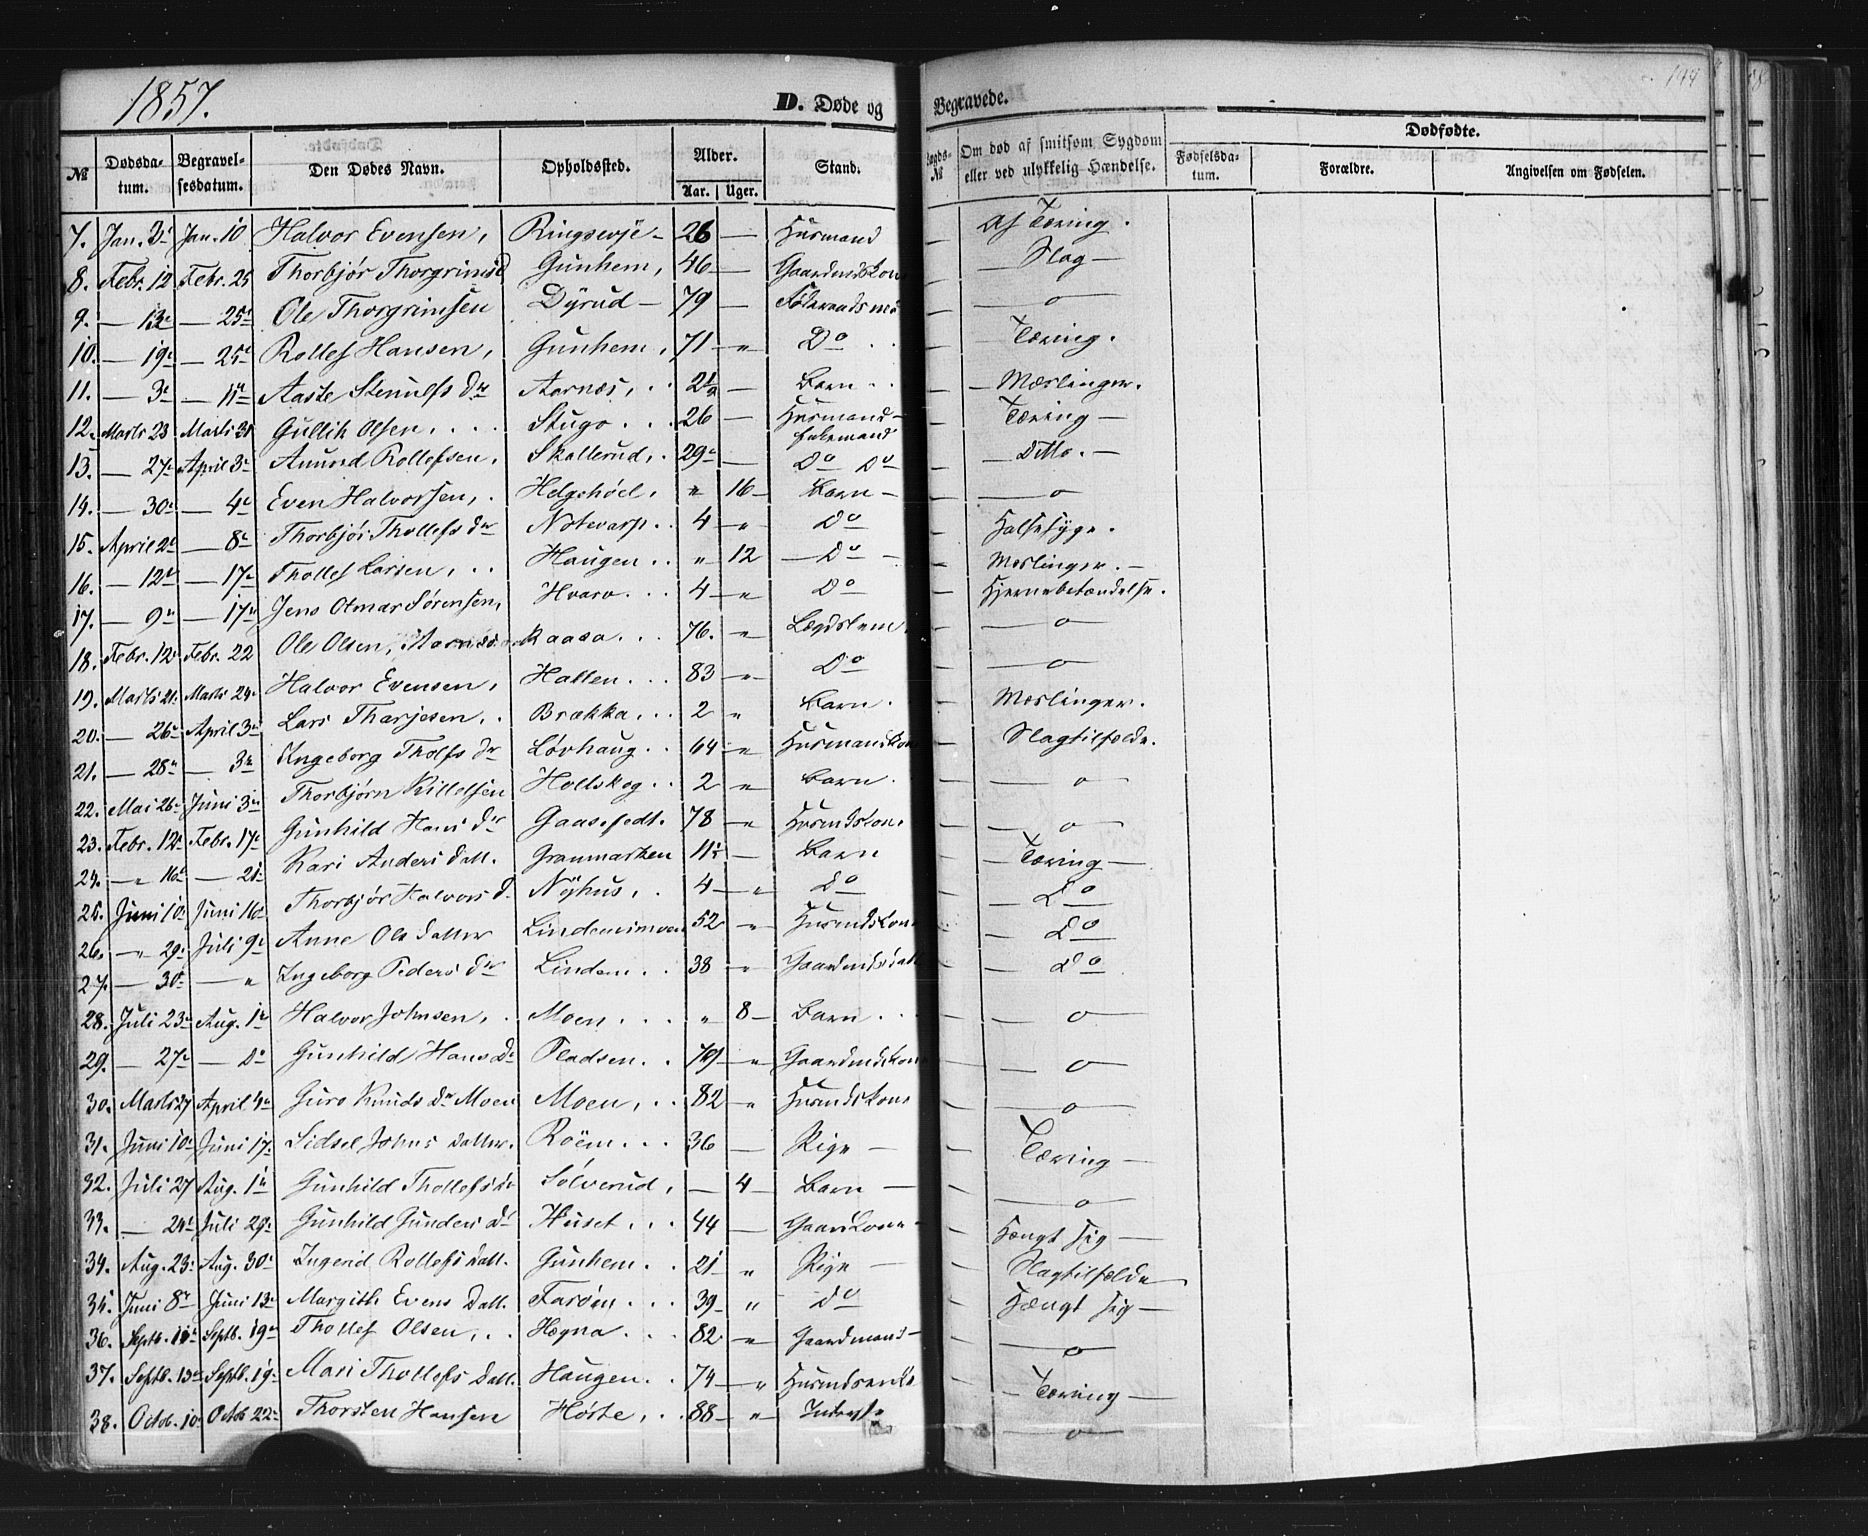 1857.
D. Døde og Begravede.
144
№ Dødsdatum. Begravelsesdatum. Den Dødes Navn. Opholdssted. Alder. Aar. Uger. Stand. № Om død af smitsom Sygdom eller ved ulykkelig Hændelse. Dødfødte. Fødselsdatum. Forældre. Angivelsen om Fødselen.
7. Jan. 3 Jan. 10 Halvor Evensen, 26 — Husmand — Af Tæring.
8. Febr. 12 Febr. 25 Thorbjør Thorgrimsd Gunhem, 46 — Gaardmdskon — Slag —
9. — 13 — 25 Ole Thorgrimsen Dÿrud — 79 — — o —
10. — 19 — 25 Rollef Hansen, Gunhem, 71 — „ Do — Tæring.
11. — 3 — 11 Aaste Stenulfs Dr Aarnæs, 2½ — Barn — Mæslinger.
12. Marts 23 Marts 31 Gullik Olsen, Stugo 26 — Husmand — Tæring —
Enkemand
13. — 27 April 3 Amund Rollefsen, Skallerud, 29 — Do Do — Ditto. —
14. — 30 — 4 Even Halvorsen, Helgehóel, „ 16 — Barn — — o —
15. April 2 — 8 Thorbjør Thollefs Dr Notevarp 4 — „ Do — Halsesyge.
16. — 12 — 17 Thollef Larsen, Haugen „ 12 — Do — — Meslinger. —
17. — 9 — 17 Jens Otmar Sørensen, Hvaro 4 — „ Do — Hjernebetændelse.
18. Febr. 12 Febr. 22 Ole Olsen, Raasa 76. „ Lægdslem — — o —
19. Marts 21 Marts 24 Halvor Evensen, Hatten 83 — „ Do — — o —
20. — 26 April 3 Lars Tharjesen, Brækka 2 „ Barn. — Meslinger.
21. — 28 — 3 Ingeborg Tholfs Dr Løvhaug 64 — „ Husmandskon — Slagtilfælde.
22. Mai 26 Juni 3 Thorbjørn Kittelsen Holtskog 2 „ Barn. — — o —
23. Febr. 12 Febr. 17 Gunhild Hans Dr Gaasefedt. 78 — „ Husmdskone — — o —
24. — „ 16 — 21 Kari Anders Datt. Granmarken 11½ — Barn — Tæring —
25. Juni 10 Juni 16 Thorbjør Halvors D. Nÿhus, 4 — „ Do — Do
26. — „ 29 Juli 9 Anne Ols Datter 52 „ Husmdskone — Do
27. — 30 — „ Ingeborg Peders Dr Lindem 38 „ Gaardmdsdatt — Do
28. Juli 23 Aug. 1 Halvor Johnsen, Moen „ 8 — Barn — — o —
29. — 27 — Do Gunhild Hans D Pladsen 79 — „ Gaardmdskone — — o —
30. Marts 27 April 4 Guro Knuds Dr Moen Moen, 82 — „ Husmdskone — — o —
31. Juni 10 Juni 17 Sidsel Johns Datter. Roëm 36 — Pige — — Tæring —
32. Juli 27 Aug. 1 Gunhild Thollefsdr Sølverud, — 4 — Barn — — — o —
33. — 24 Juli 29 Gunhild Gunders D Huset 44 — Gaardkone — — Hængt sig —
34. Aug. 23 Aug. 30 Ingerid Rollefs Datt. Gunhem 21 „ Pige — — Slagtilfælde
35. Juni 8 Juni 13 Margith Evens Datt. Farøen 39 „ Do — Hængt sig —
36. Septb. 11 Septb. 19 Thollef Olsen, Hægna 82 — „ Gaardmand — — — o —
37. Septb. 13 Septb. 19 Mari Thollefs Datt. Haugen 74 — „ Husmdsenke — — Tæring —
38. Octob. 10 Octob 22 Thorsten Hansen Hóite, 88 — „ — — o —